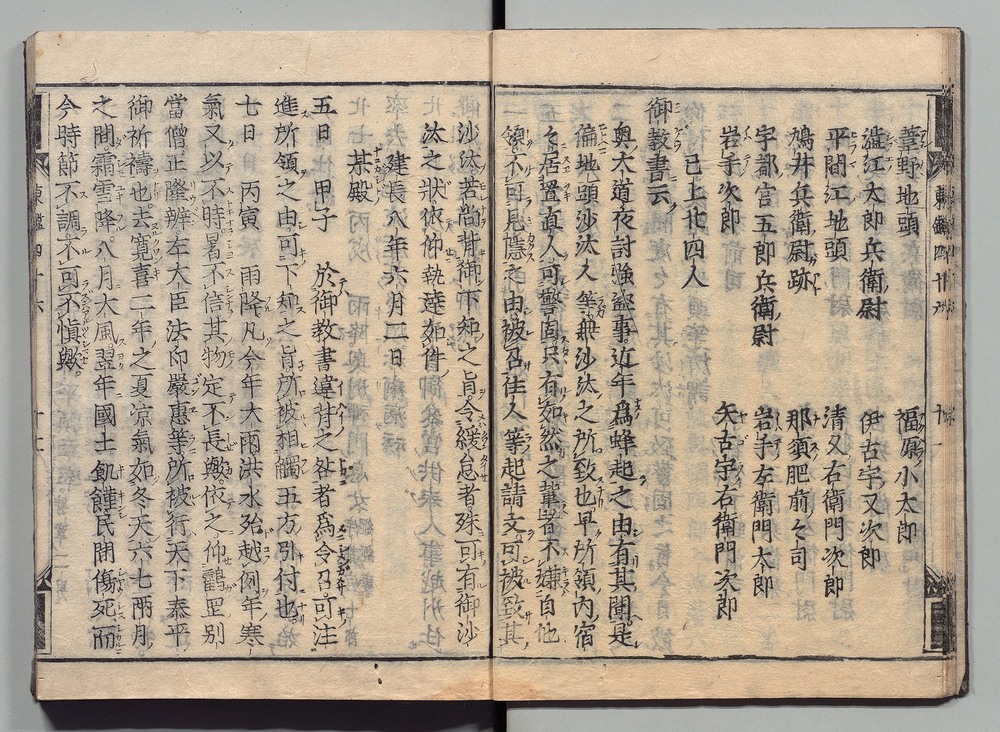 葦野地頭　福原小太郎
澁江太郎兵衛尉　伊古宇又次郎
平間江地頭　清又右衛門次郎
鳩井兵衛尉跡　那須肥前々司
宇都宮五郎兵衛尉　岩手左衛門太郎
岩手次郎　矢古宇右衛門次郎
已上廿四人
御教書云
奥大道夜討強盗事近年為蜂起之由有其聞是
偏地頭沙汰人等無沙汰之所致也早所領内宿
々居置直人可警固只有如然之輩者不嫌自他
領不可見隱之由被召住人等起請文可被致其
沙汰若尚背御下知之旨令緩怠者殊可有御沙
汰之状依仰執達如件
建長八年六月二日
某殿
五日　甲子　於御教書違背之咎者為令召可注
進所領之由可下知之旨所被相觸五方引付也
七日　丙寅　雨降凡今年大雨洪水殆越例年寒
氣又以不時暑不信其物定不長歟依之仰鶴罡別
當僧正隆辨左大臣法印嚴惠等所被行天下泰平
御祈禱也去寛喜二年之夏凉氣如冬天六七兩月
之間霜雪降八月大風翌年國土飢饉民間傷死而
今時節不調不可不愼歟
東鑑四十六
十一
東鑑四十六
十二